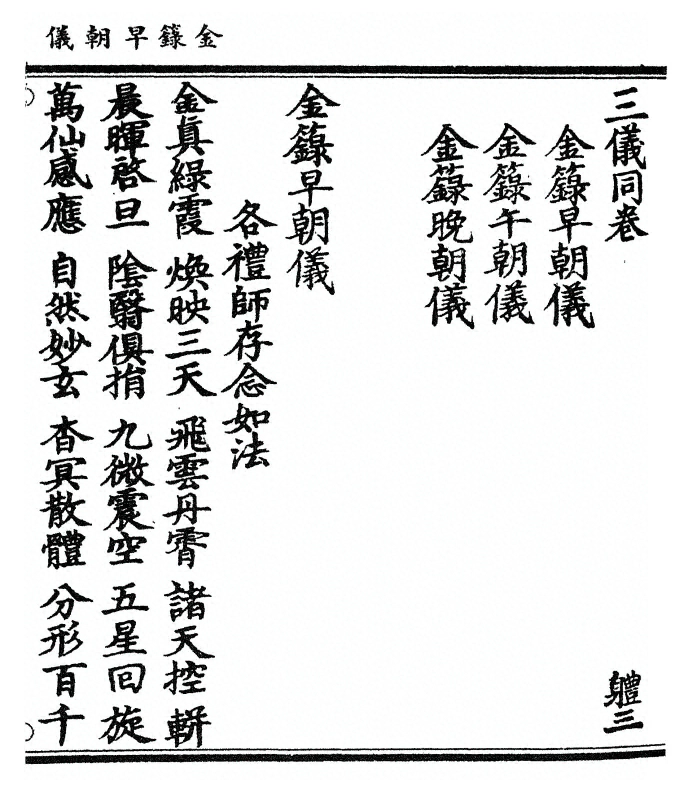 金籙早朝儀
三儀同卷 軆三
金籙早朝儀
金籙午朝儀
金籙晚朝儀
金籙早朝儀
各禮師存念如法
金眞綠霞 煥映三天 飛雲丹霄 諸天控軿
晨暉啓旦 陰翳俱捎 九微震空 五星回旋
萬仙感應 自然妙玄 杳冥散體 分形百千